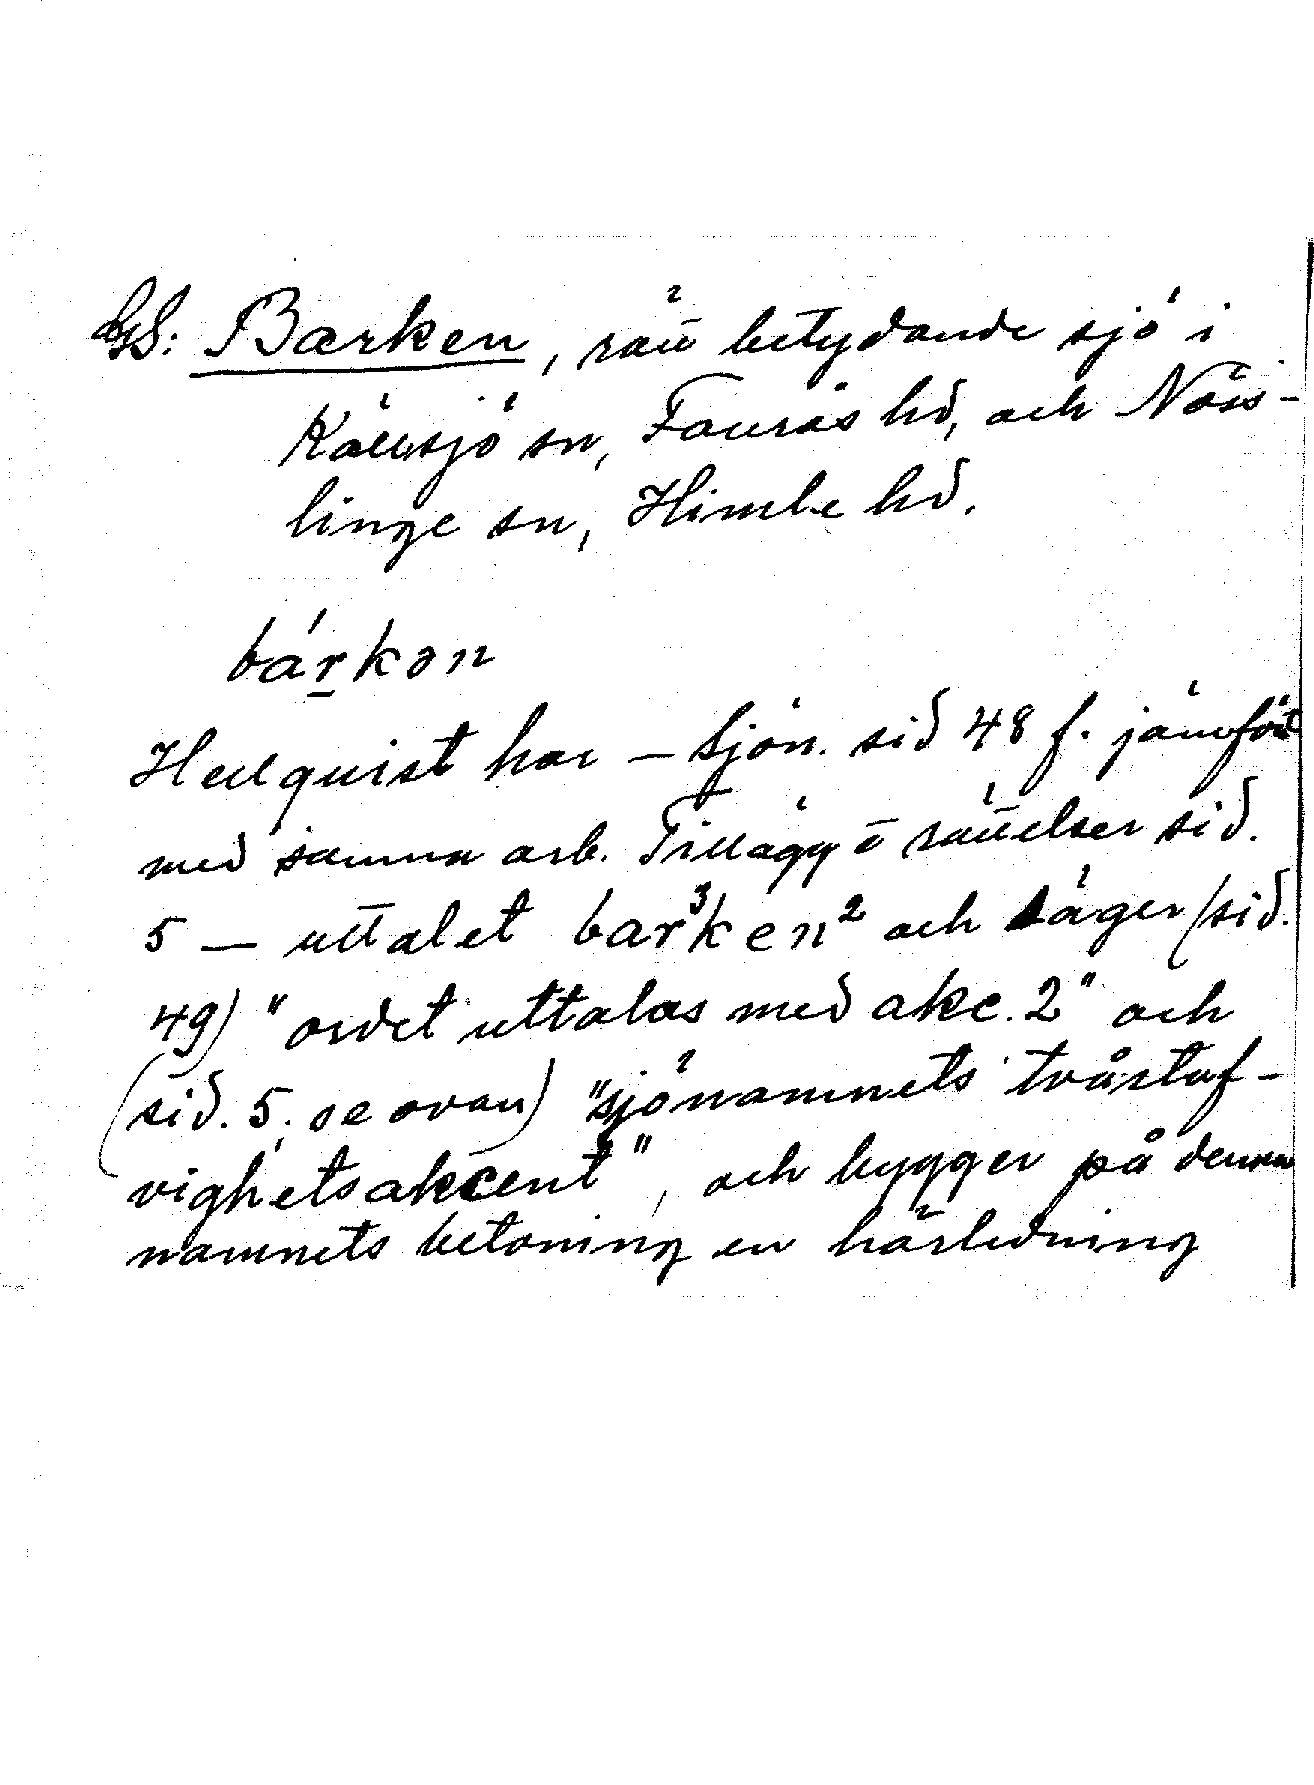 GS: Barken, rätt betydande sjö i
Källsjö sn, Faurås hd, och Nöss-
linge sn, Himle hd.
bárkon
Hellquist har – Sjön. sid 48 f. jämfört
med samma arb. Tillägg o rättelser sid.
5 — uttalet bar³ken² och säger (sid.
49) "ordet uttalas med akc. 2" och
(sid. 5, se ovan) "sjönamnets tvåstaf-
vighetsakcent", och bygger på denna
namnets betoning en härledning